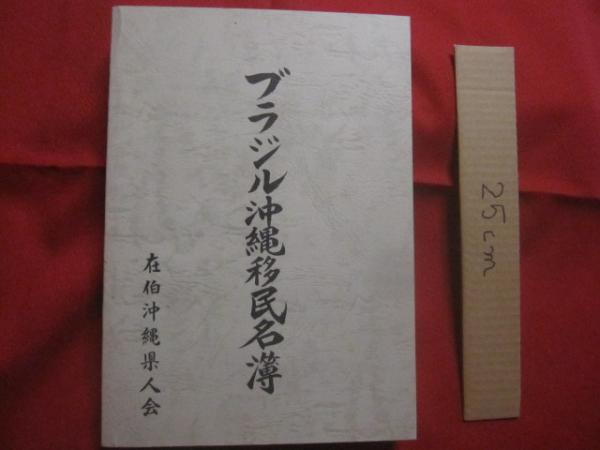 ブラジル沖縄移民名簿
在伯沖縄県人会
25cm